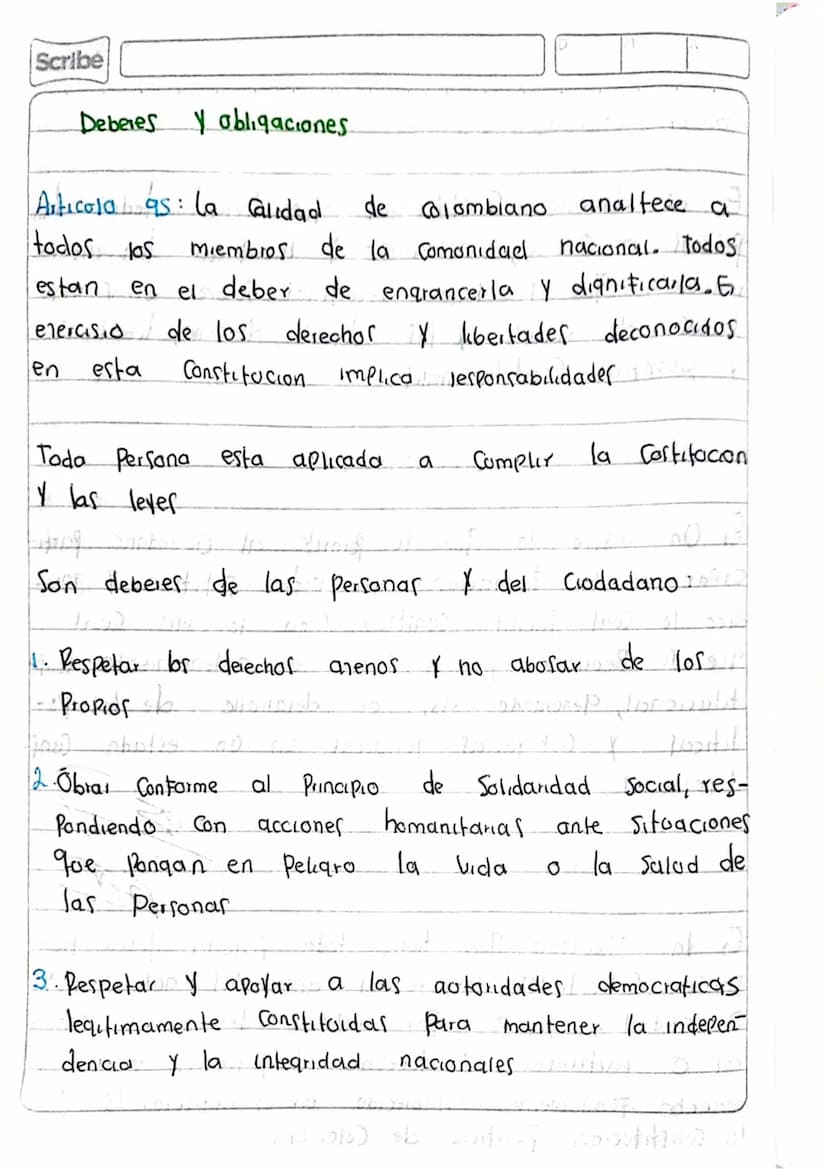 Scribe
Deberes y obligaciones
Articolo 95: la Calidad de colombiano analtece a
todos los miembros de la Comonidad nacional. Todos
estan en el deber de engrancerla y dignificarla. E
enercisio de los derechos y libertades deconocidos
en esta Constitocion implica responsabilidades
Toda Persona esta aplicada a Cumplir la Costitocon
y las leyes
Son deberes de las personas y del Ciodadano:
1. Respetar los derechos arenos y no abosar de los
Propios
2. Obrar Conforme al Principio de Solidaridad Social, res-
Pondiendo Con acciones homanitarias ante Sitoaciones
que Pongan en Peligro la Vida o la Salud de
las Personas
3. Respetar y apoyar a las aotoridades democraticas
legitimamente Constitoidas Para mantener la indepen-
dencia y la integridad nacionales